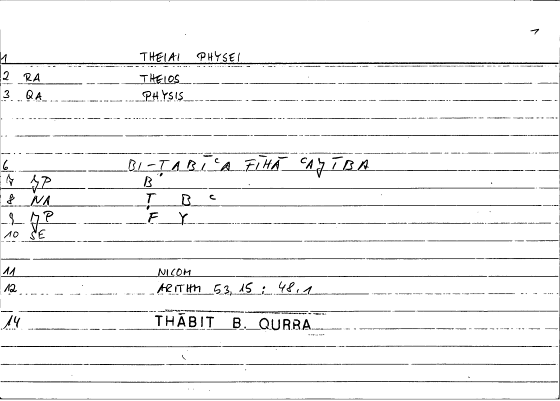 1
1 THEIAI PHYSEI
2 RA THEIOS
3 QA PHYSIS
6 BI-ṬABĪʿA FĪHĀ ʿAǦĪBA
7 ǦP B
8 NA Ṭ B ʿ
9 ǦP F Y
10 SE
11 NICOM
12 ARITHM 53,15 : 48,1
14 THĀBIT B. QURRA